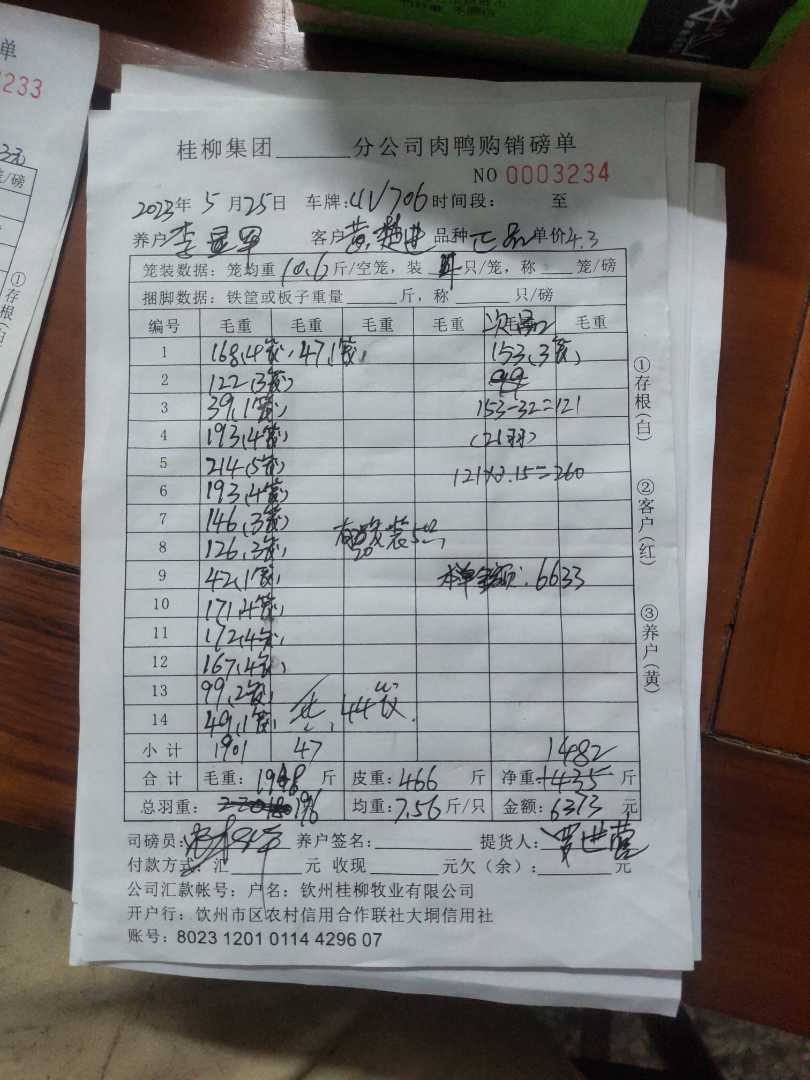 单
233
桂柳集团______分公司肉鸭购销磅单
NO 0003234
2023年 5月25日 车牌:UV706 时间段: 至
养户 李 客户 黄 品种 正品 单价4.3
笼装数据: 笼均重 10.6 斤/空笼, 装 只/笼, 称____笼/磅
捆脚数据: 铁筐或板子重量______斤, 称______只/磅
编号 毛重 毛重 毛重 毛重 毛重 毛重
次品
1 168,(4笼), 47,1笼, 153,3笼,
2 122(3笼)
3 39,1笼, 153-32=121
4 193,(4笼) (21羽)
5 214(5笼)
121×2.15=260
6 193,(4笼)
7 146,3笼,
8 126,3笼,
9 42,1笼, 本单金额: 6633
10 171,4笼,
11 172,4笼,
12 167,4笼,
13 99,2笼,
14 49,1笼, 共,44笼.
小计 1901 47 1482
合计 毛重:1948斤 皮重:466 斤 净重: 1435 斤
总羽重: 196 均重:7.56斤/只 金额:6373元
司磅员: 养户签名: 提货人:罗世营
付款方式:汇______元 收现______元欠(余):______元
公司汇款帐号: 户名: 钦州桂柳牧业有限公司
开户行: 钦州市区农村信用合作联社大垌信用社
账号: 8023 1201 0114 4296 07
①存根(白)
②客户(红)
③养户(黄)
元
/磅
①存根(白